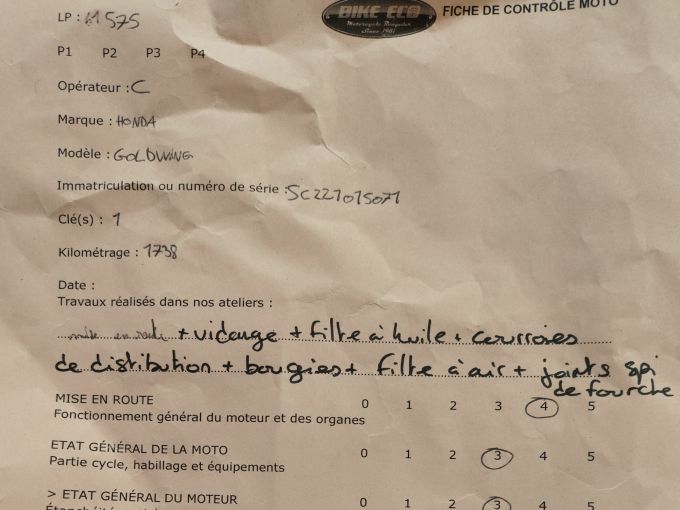 BIKE ECO
Motorcycle Recycler
Since 1981
FICHE DE CONTRÔLE MOTO
LP : M 575
P1 P2 P3 P4
Opérateur : C
Marque : HONDA
Modèle : GOLDWING
Immatriculation ou numéro de série : SC227015071
Clé(s) : 1
Kilométrage : 1738
Date :
Travaux réalisés dans nos ateliers :
mise en route + vidange + filtre à huile + courroies
de distibution + bougies + filtre à air + joints spi
de fourche
MISE EN ROUTE 0 1 2 3 4 5
Fonctionnement général du moteur et des organes
ETAT GÉNÉRAL DE LA MOTO 0 1 2 3 4 5
Partie cycle, habillage et équipements
> ETAT GÉNÉRAL DU MOTEUR 0 1 2 3 4 5